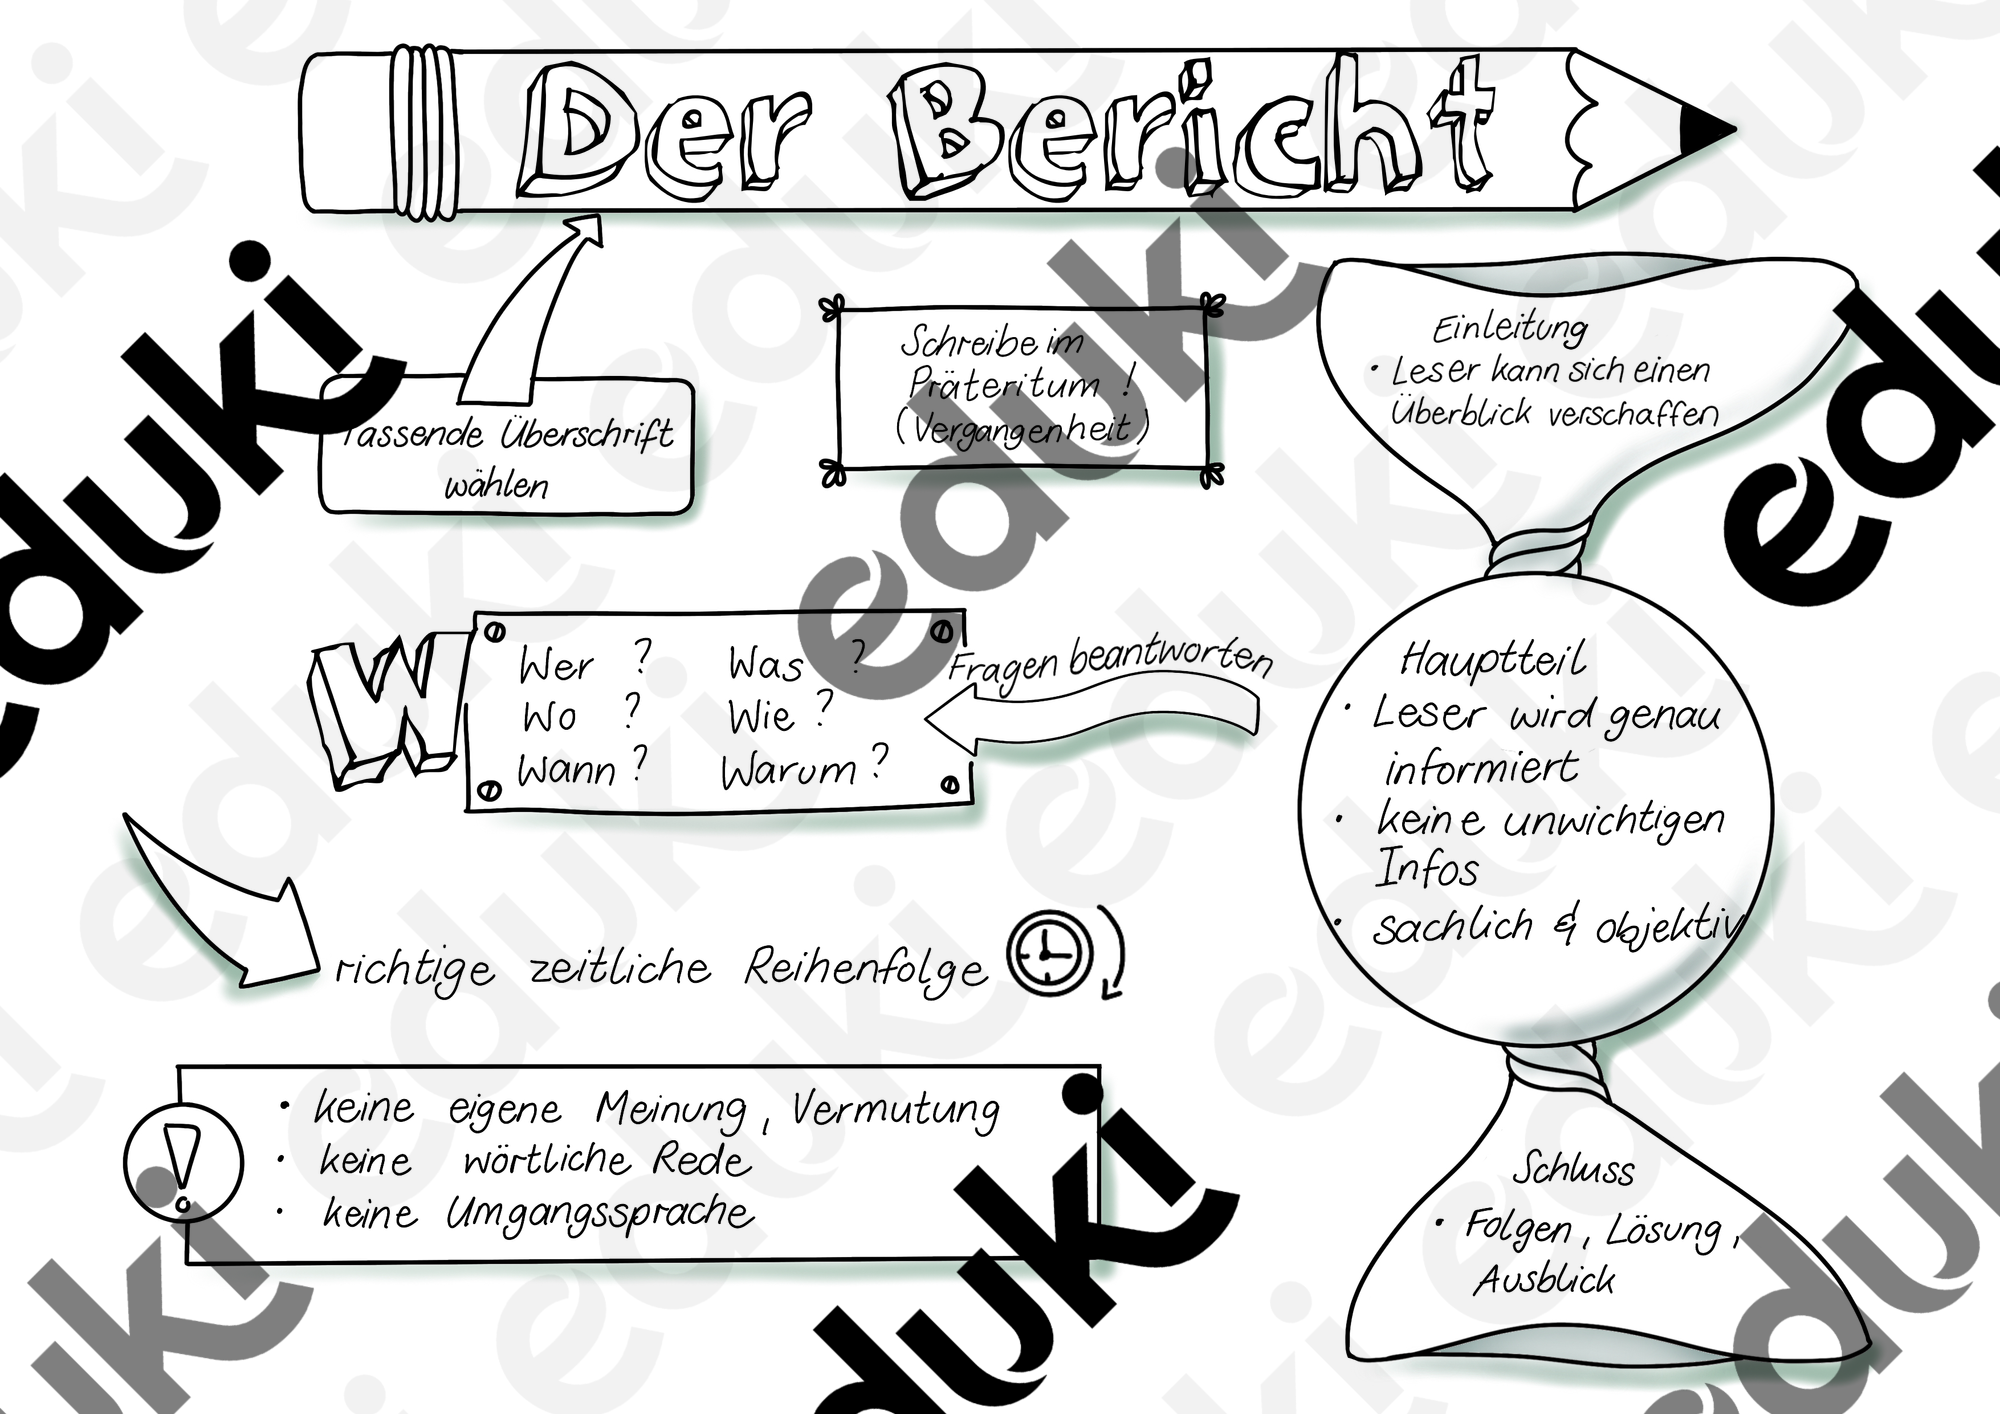 Der Bericht
Überschrift
wählen
Schreibe im
Präteritum !
(Vergangenheit)
Einleitung
• Leser kann sich einen
Überblick verschaffen
W
Wer ? Was ?
Wo ? Wie ?
Wann ? Warum ?
Fragen beantworten
Hauptteil
• Leser wird genau
informiert
• keine unwichtigen
Infos
• sachlich & objektiv
richtige zeitliche Reihenfolge
!
• keine eigene Meinung, Vermutung
• keine wörtliche Rede
• keine Umgangssprache
Schluss
• Folgen, Lösung,
Ausblick
eduki
eduki
eduki
eduki
eduki
eduki